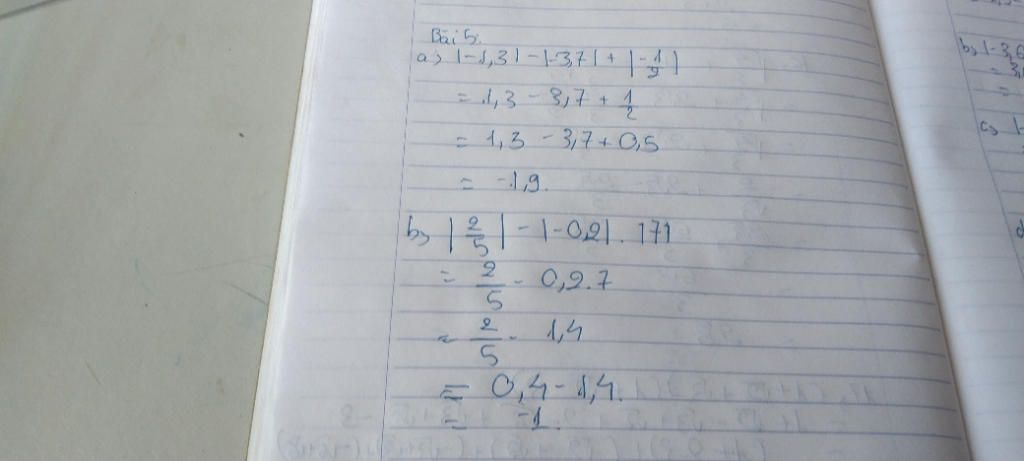 Bài 5.
a) |-1,3| - |-3,7| + |-1/2|
= 1,3 - 3,7 + 1/2
= 1,3 - 3,7 + 0,5
= -1,9.
b) |2/5| - |-0,2| . |7|
= 2/5 - 0,2.7
= 2/5 - 1,4
= 0,4 - 1,4.
= -1.
b) |-3,6
= 3,
=
c) |-
d